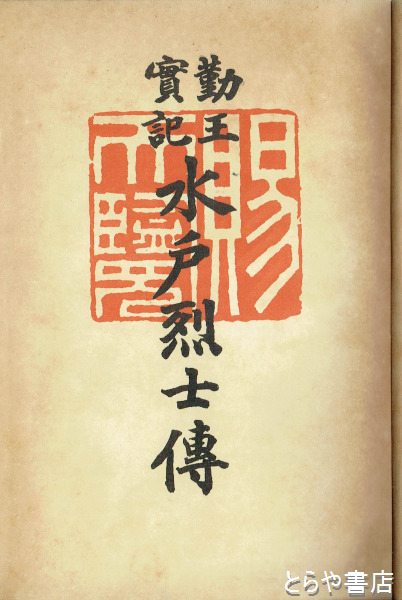 勤王
實記
水戸烈士傳
賜天覽
とらや書店